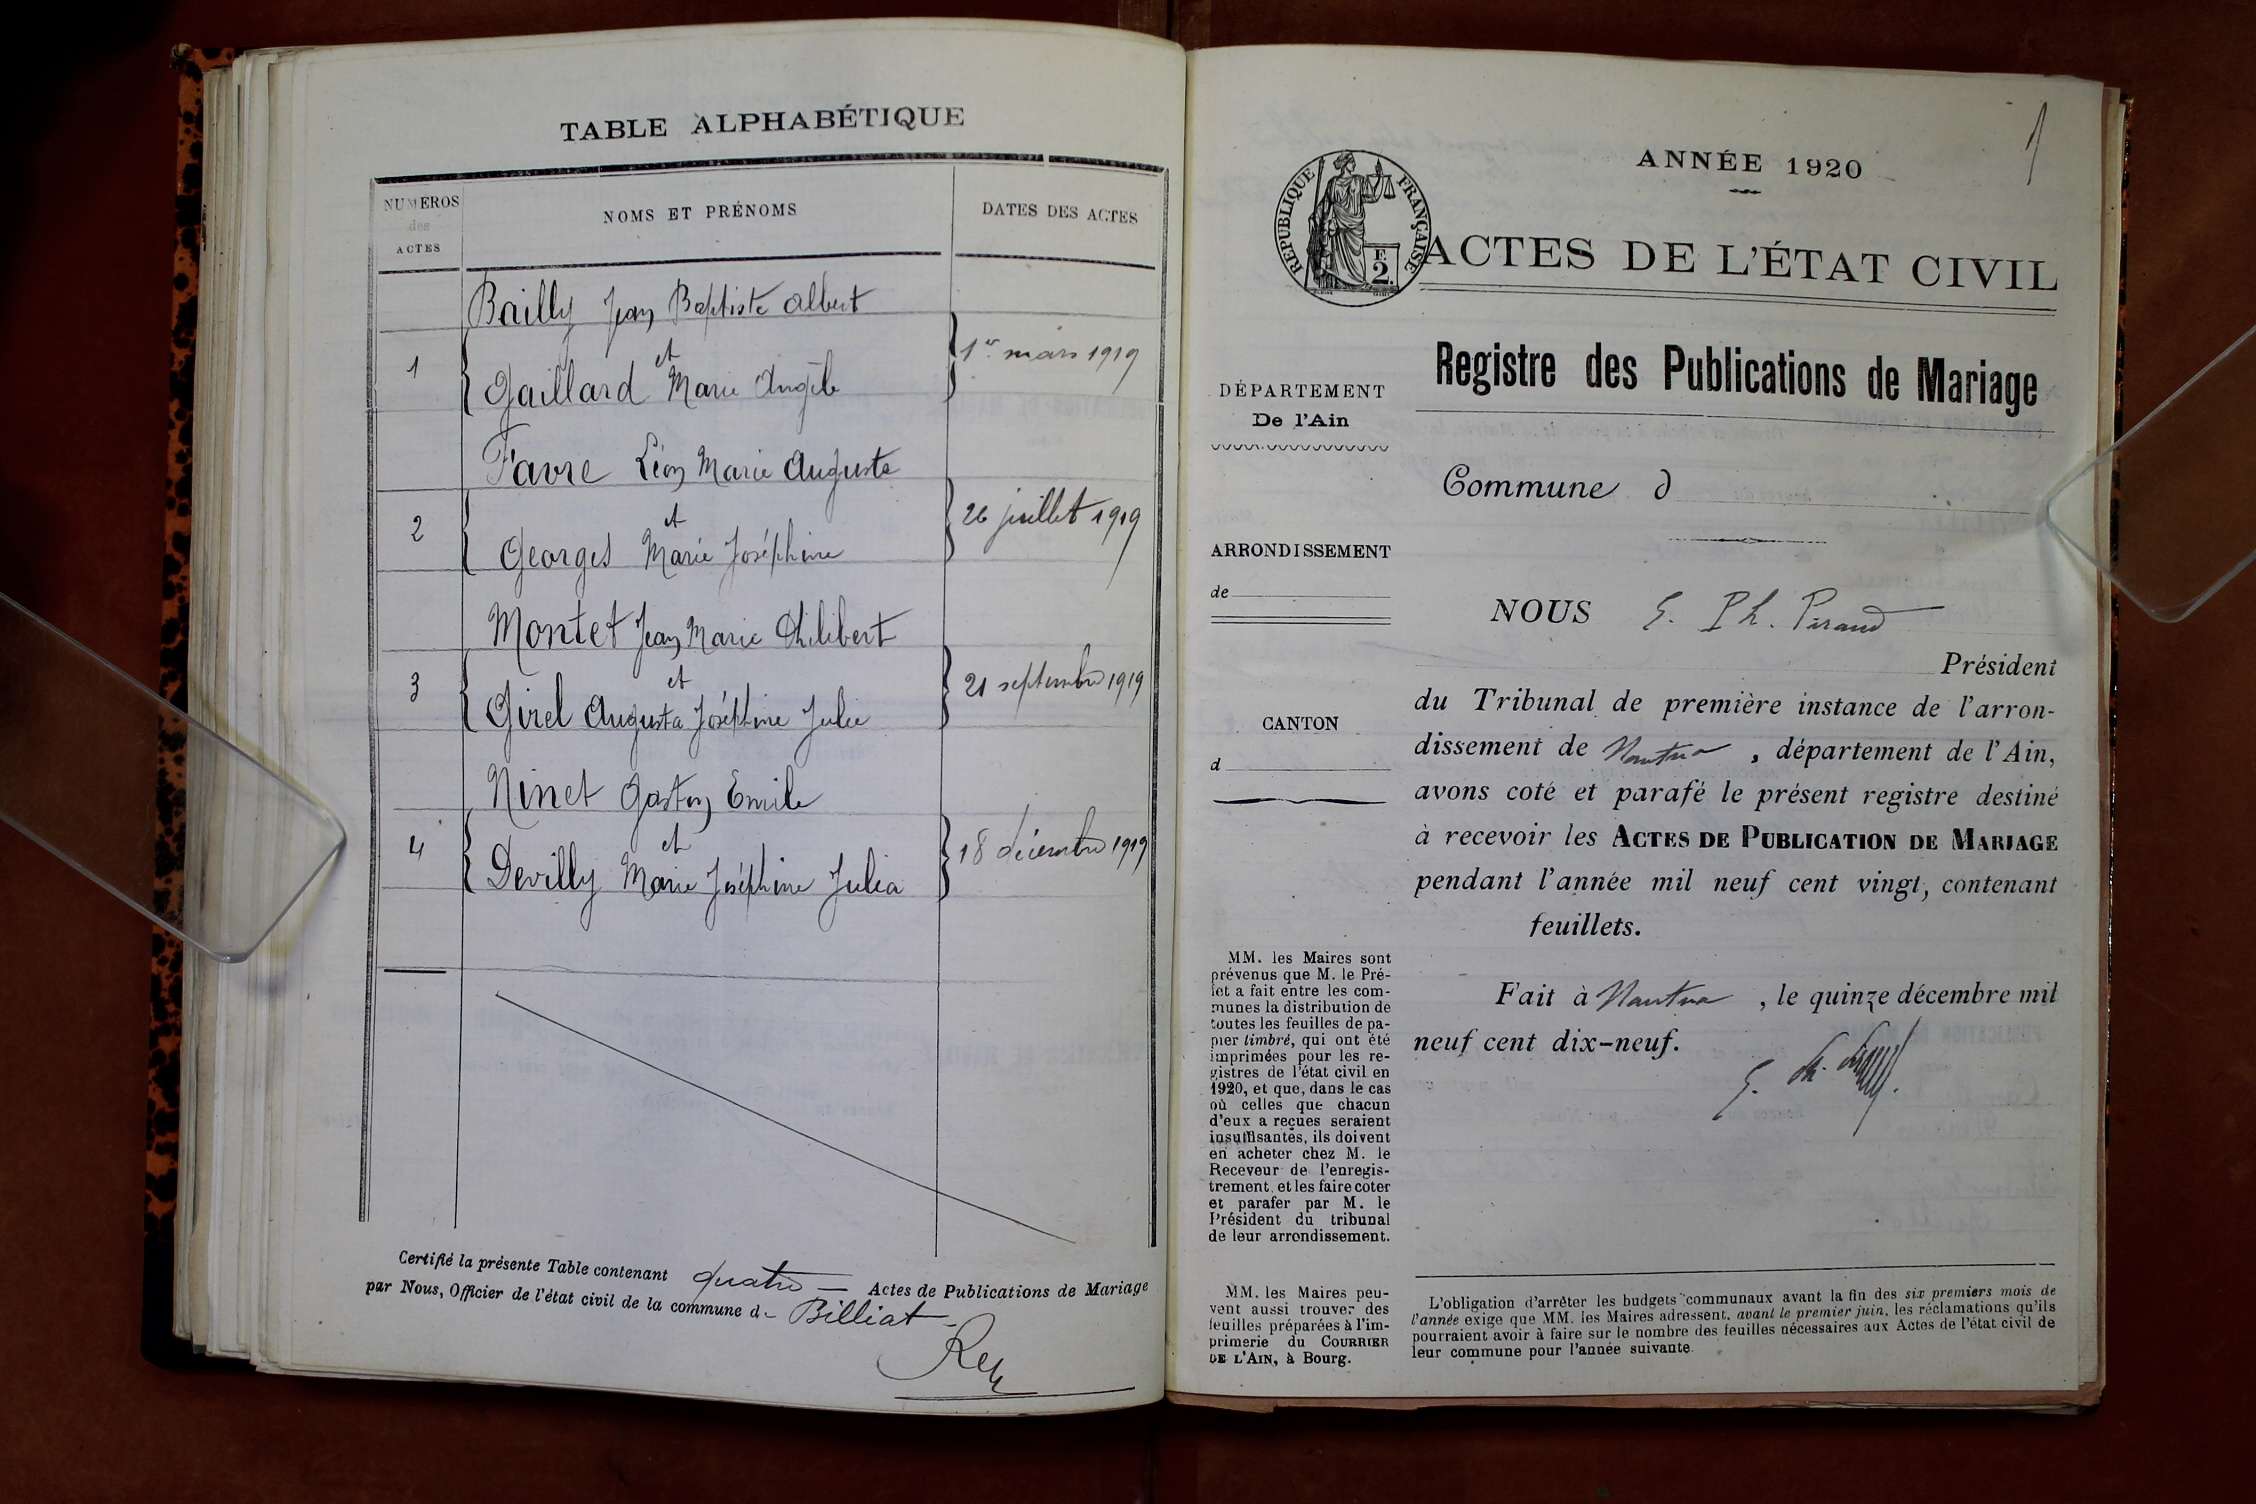 TABLE ALPHABÉTIQUE
NUMÉROS
des
ACTES
NOMS ET PRÉNOMS
DATES DES ACTES
Bailly Jean Baptiste Albert
1 et 1er mars 1919
Gaillard Marie Angèle
Favre Léon Marie Auguste
2 et 26 juillet 1919
Georges Marie Joséphine
Montet Jean Marie Philibert
3 et 21 septembre 1919
Girel Augusta Joséphine Julie
Ninet Gaston Emile
4 et 18 décembre 1919
Devilly Marie Joséphine Julia
Certifié la présente Table contenant quatre Actes de Publications de Mariage
par Nous, Officier de l'état civil de la commune de Billiat
Rey
1
ANNÉE 1920
RÉPUBLIQUE FRANÇAISE
F.
2.
ACTES DE L'ÉTAT CIVIL
Registre des Publications de Mariage
DÉPARTEMENT
De l'Ain
ARRONDISSEMENT
de
CANTON
d
MM. les Maires sont
prévenus que M. le Pré-
fet a fait entre les com-
munes la distribution de
toutes les feuilles de pa-
pier timbré, qui ont été
imprimées pour les re-
gistres de l'état civil en
1920, et que, dans le cas
où celles que chacun
d'eux a reçues seraient
insuffisantes, ils doivent
en acheter chez M. le
Receveur de l'enregis-
trement, et les faire coter
et parafer par M. le
Président du tribunal
de leur arrondissement.
MM. les Maires peu-
vent aussi trouver des
feuilles préparées à l'im-
primerie du COURRIER
DE L'AIN, à Bourg.
Commune d
NOUS E. Ph. Piraud
Président
du Tribunal de première instance de l'arron-
dissement de Nantua, département de l'Ain,
avons coté et parafé le présent registre destiné
à recevoir les ACTES DE PUBLICATION DE MARIAGE
pendant l'année mil neuf cent vingt, contenant
feuillets.
Fait à Nantua, le quinze décembre mil
neuf cent dix-neuf.
L'obligation d'arrêter les budgets communaux avant la fin des six premiers mois de
l'année exige que MM. les Maires adressent, avant le premier juin, les réclamations qu'ils
pourraient avoir à faire sur le nombre des feuilles nécessaires aux Actes de l'état civil de
leur commune pour l'année suivante.